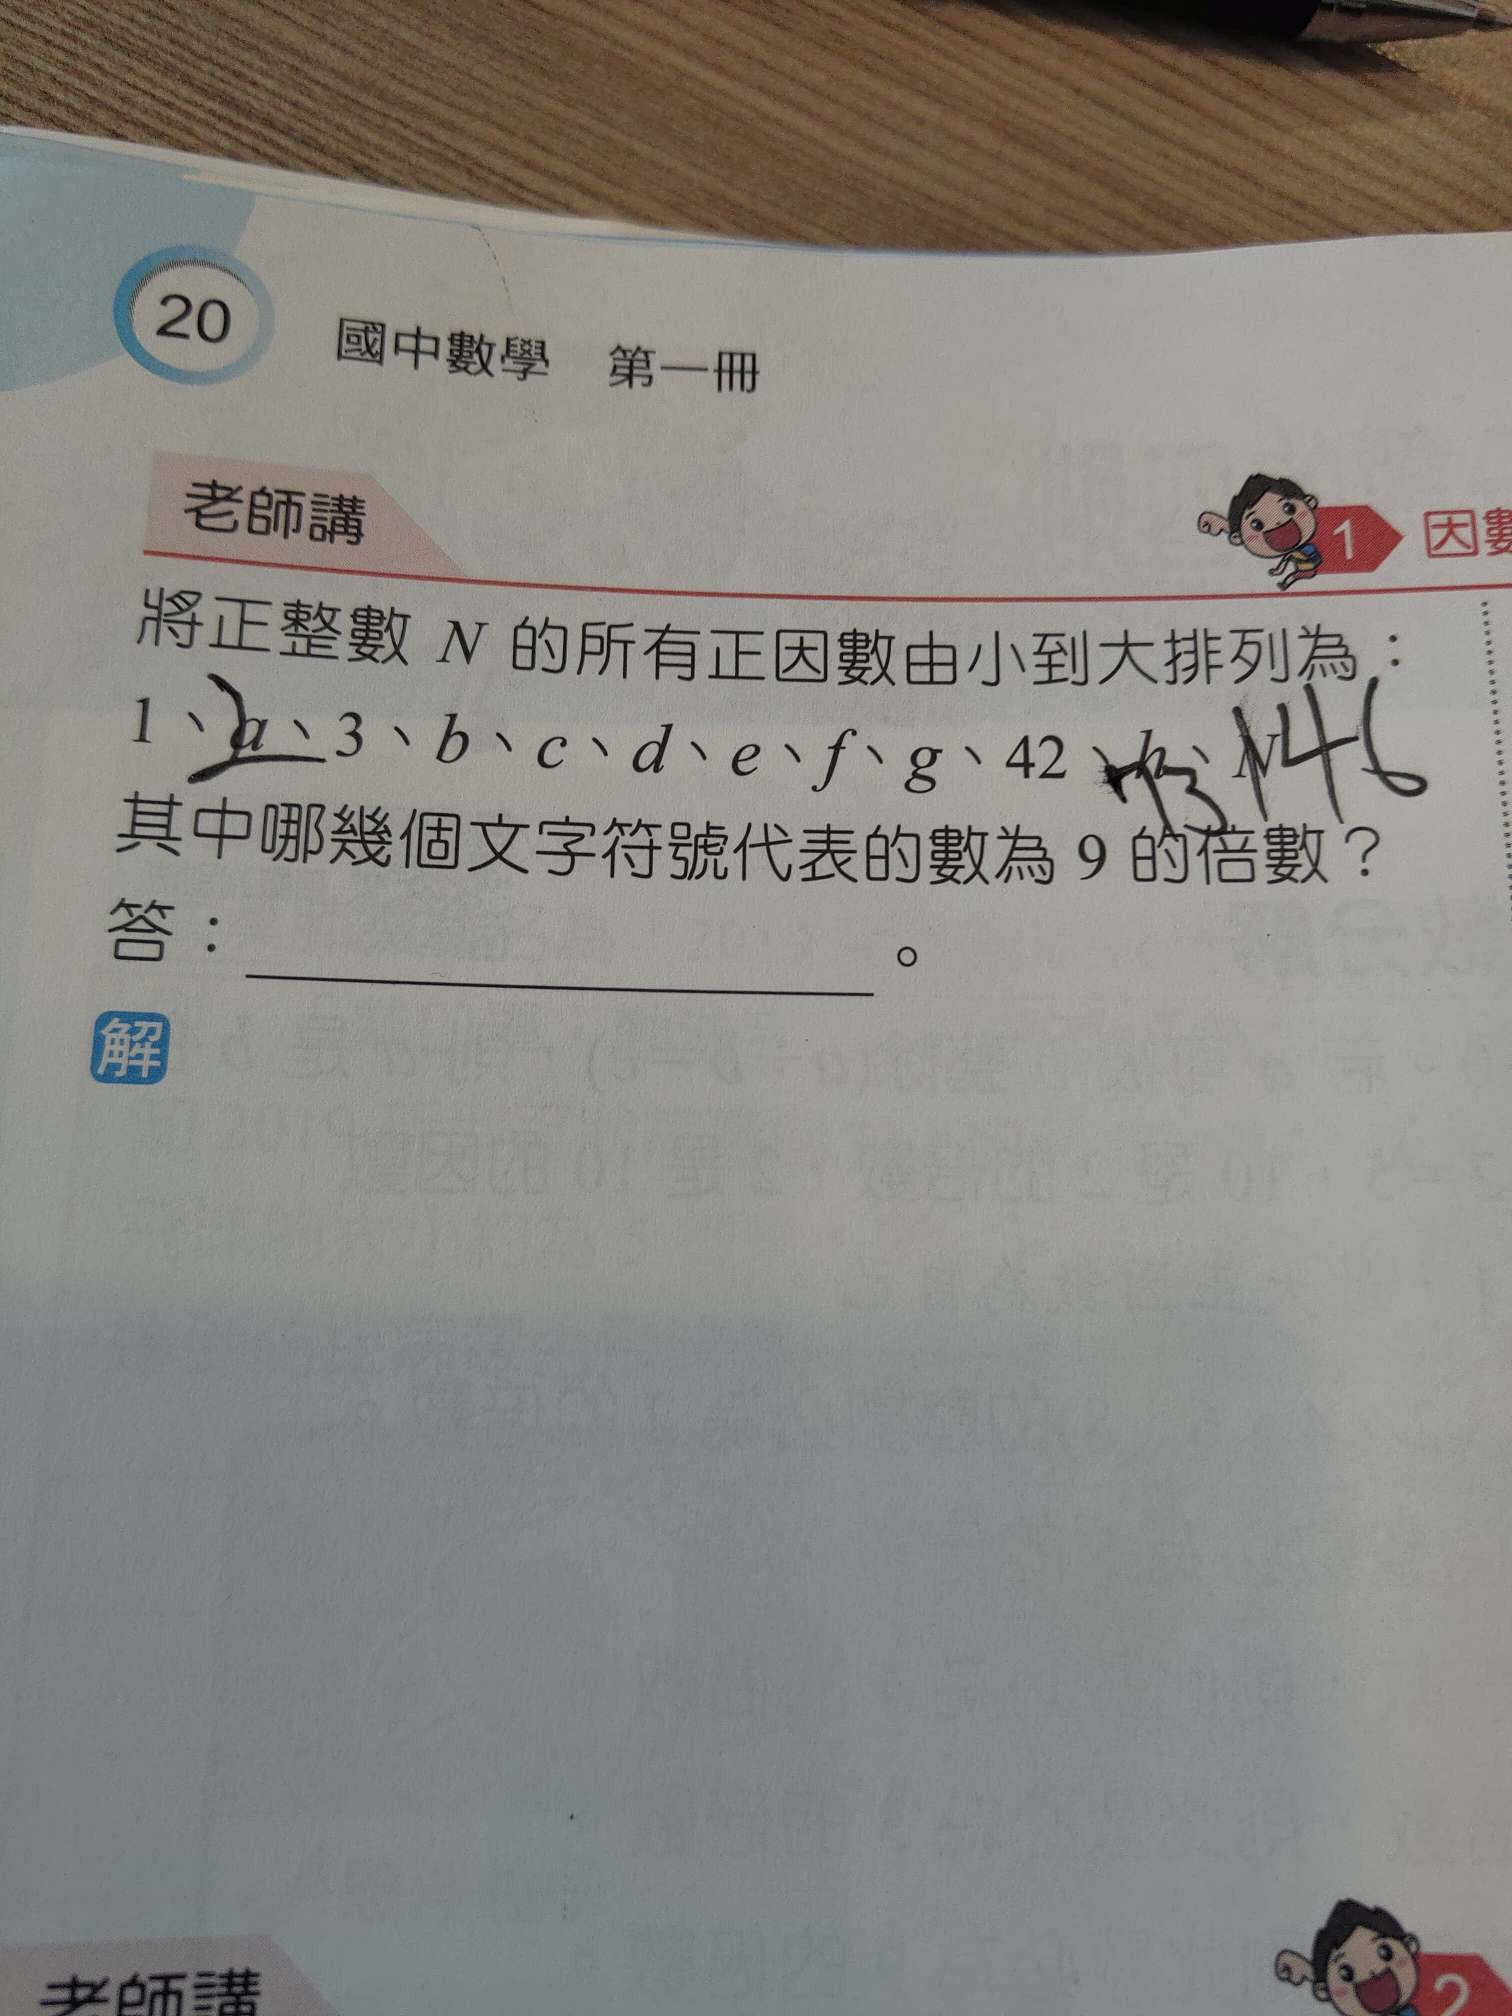 20
國中數學 第一冊
老師講
1 因數
將正整數 N 的所有正因數由小到大排列為：
1、a、3、b、c、d、e、f、g、42、h、N
2 73 146
其中哪幾個文字符號代表的數為 9 的倍數？
答： 。
解
老師講
2